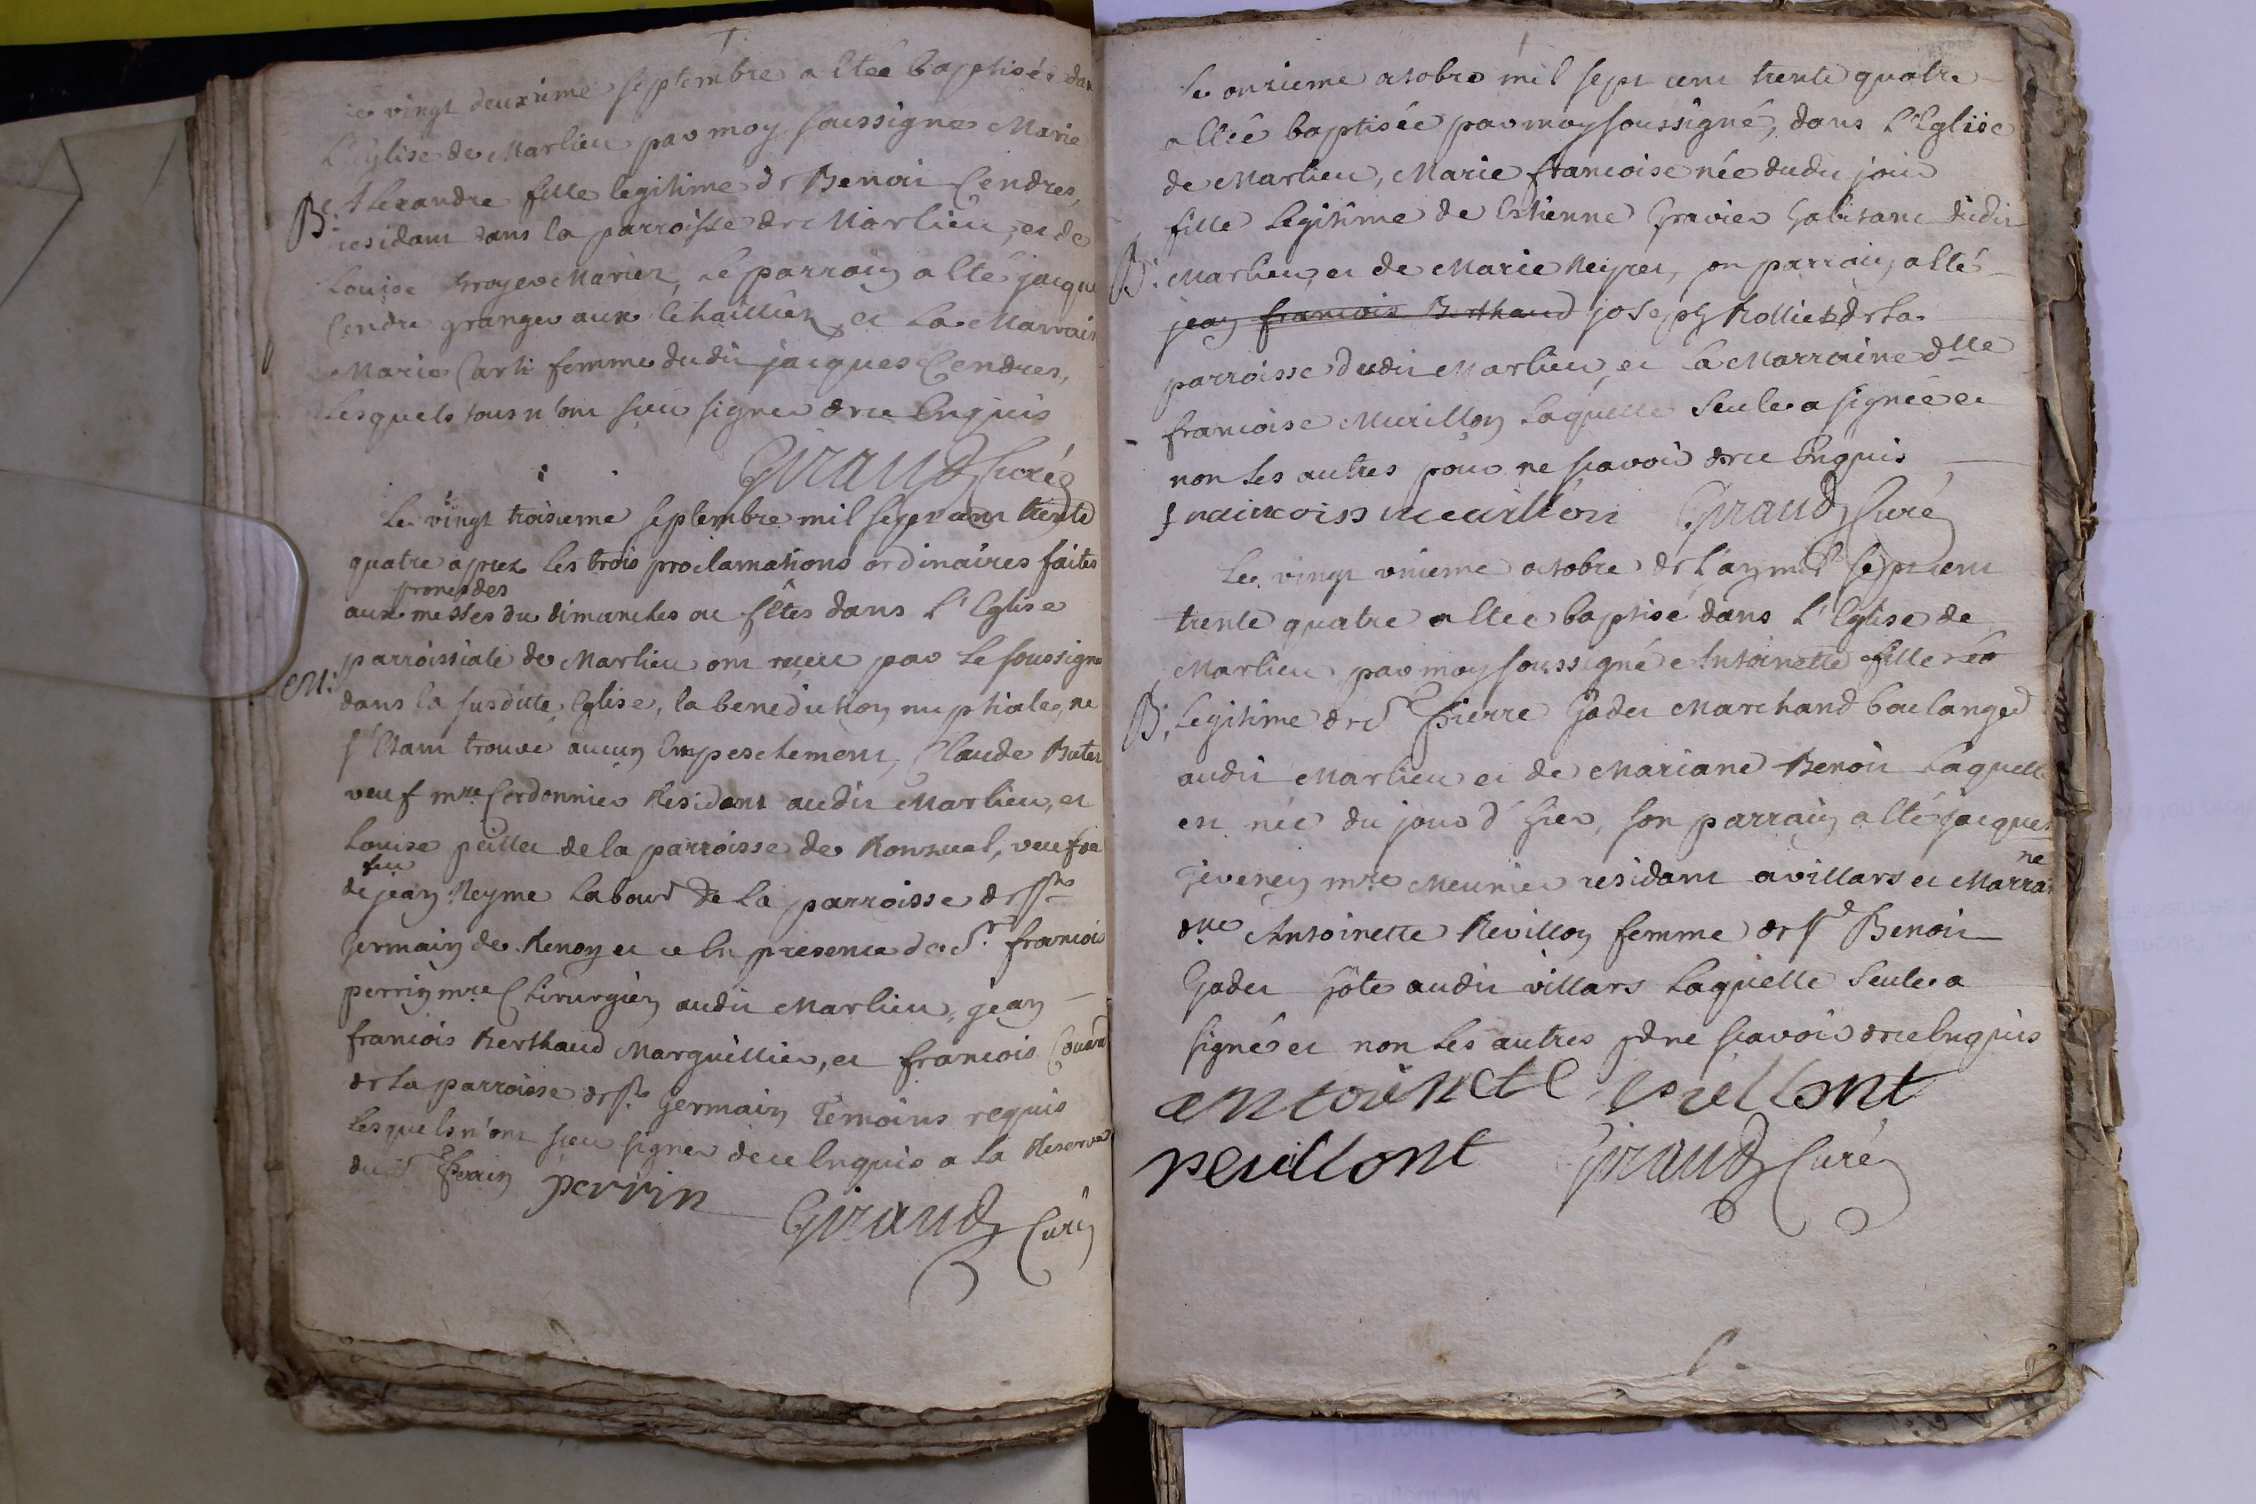 Le vingt deuxieme septembre a été baptisée dans
L'Eglise de Marlieu par moy soussigné Marie
Bt. Alexandre fille legitime de Benoit Cendres,
residant dans la parroisse de Marlieu, et de
Louise mariez, Le parrain a été jacque
Cendre granger aux et La Marrain
Marie Carti femme dudit jacques Cendres,
Lesquels tous n'ont sceu signer de ce Enquis
Giraud Curé
Le vingt troisieme septembre mil sept cent trente
quatre aprez les trois proclamations ordinaires faites
prones des
aux messes du dimanches ou fêtes dans L'Eglise
parroissiale de Marlieu ont reçeu par Le soussigné
M:
dans la susditte Eglise, la benediction nuptiale, ne
s'Etant trouvé aucun Empeschement, Claude
veuf mre Cordonnier Residant audit Marlieu, et
Louise peillet de la parroisse de Ronzuel, veufve
feu
de jean Reyme Labour de La parroisse de St
Germain de Renon et ce En presence de Sr. francois
perrin mre Chirurgien audit Marlieu, jean
francois Berthaud Marguillier, et francois
de La parroisse de St Germain Temoins requis
Lesquels n'ont sceu signer de ce Enquis a La Reserve
dudit Sr Perrin perrin Giraud Curé
Le onzieme octobre mil sept cent trente quatre
a Été baptisée par moy soussigné, dans L'Eglise
de Marlieu, Marie francoise née dudit jour
fille Legitime de Estienne Gravier habitant dudit
B: Marlieu, et de Marie Neyret, son parrain, a Été
jean francois Berthaud joseph Rolliet de La
parroisse dudit Marlieu, et La Marraine dlle
francoise Murillon Laquelle Seule a signée et
non Les autres pour ne scavoir de ce Enquis
Giraud Curé
Le vingt unieme octobre de L'an mil sept cent
trente quatre a Été baptisé dans L'Eglise de
Marlieu par moy soussigné Antoinette fille
B: Legitime de Sr Pierre Godet Marchand boulanger
audit Marlieu et de Mariane Benoit Laquelle
est née du jour d'hier, son parrain a Été jacques
mre Meunier residant a villars et Marrai
ne
dlle Antoinette Revillon femme de Sr Benoit
Godet hôte audit villars Laquelle Seule a
signé et non Les autres pr ne scavoir de ce Enquis
antoinete
reuillont Giraud Curé